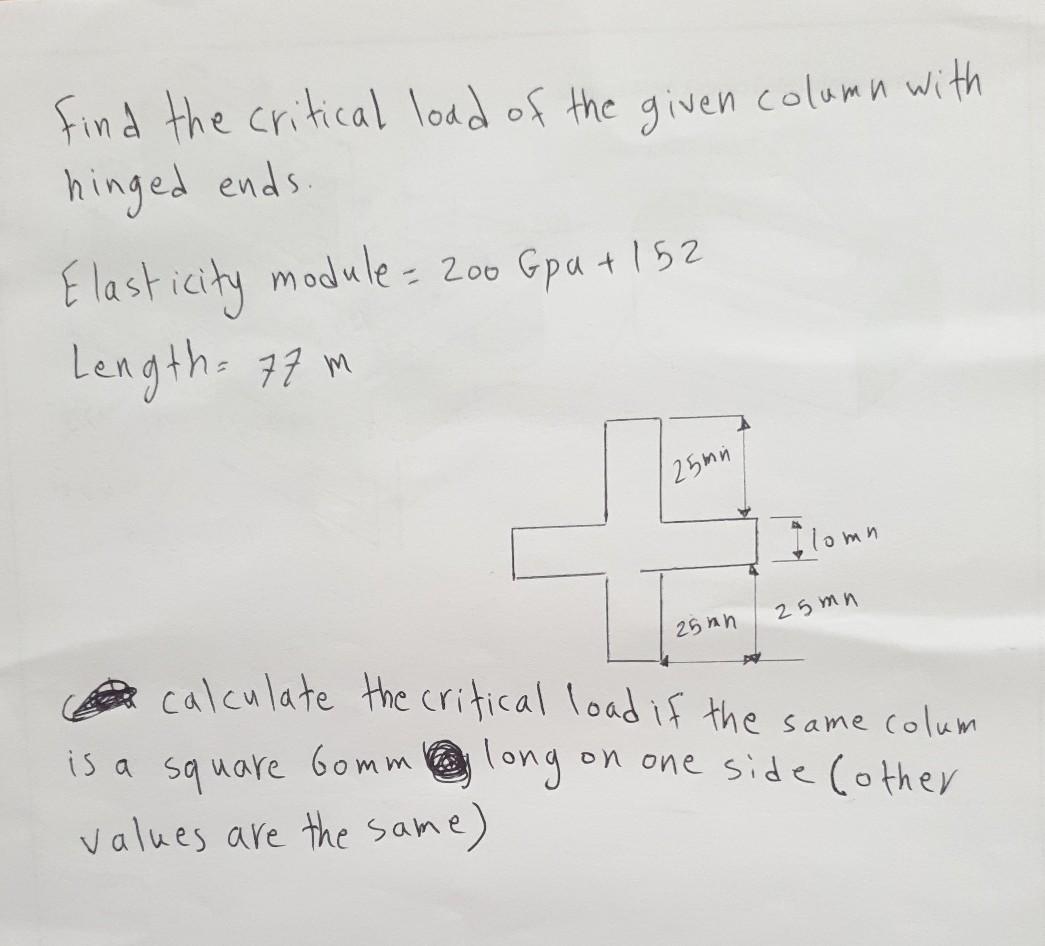 Find the critical load of the given column with
hinged ends.
Elasticity module = 200 Gpa + 152
Length = 77 m
25mm
10mm
25mm
25mm
calculate the critical load if the same colum
is a square 60mm long on one side (other
values are the same)